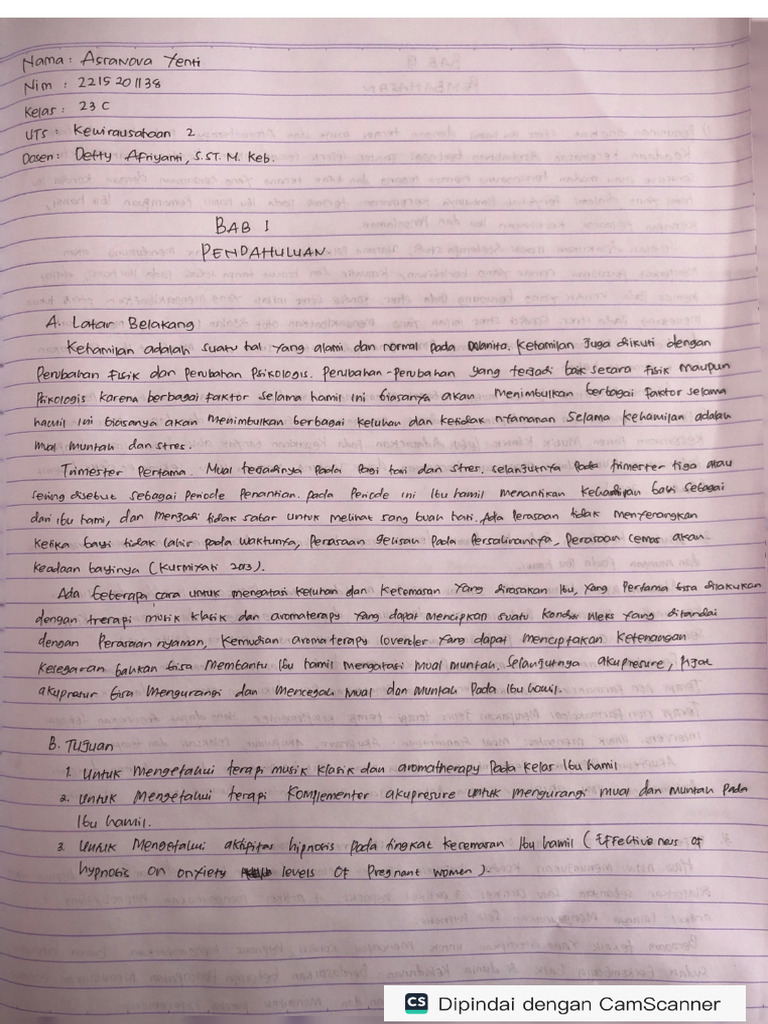 Nama : Asranova Yenti
Nim : 2215201138
Kelas : 23 C
UTS : Kewirausahaan 2
Dosen : Detty Afriyanti, S.ST. M. Keb.
BAB I
PENDAHULUAN
A. Latar Belakang
Kehamilan adalah suatu hal yang alami dan normal pada wanita. Kehamilan Juga diikuti dengan
Perubahan Fisik dan perubahan Psikologis. Perubahan-perubahan yang terjadi baik secara fisik maupun
Psikologis karena berbagai faktor selama hamil ini biasanya akan menimbulkan berbagai faktor selama
hamil ini biasanya akan menimbulkan berbagai keluhan dan ketidak nyamanan selama kehamilan adalah
mual muntah dan stres.
Trimester Pertama. Mual terjadinya pada Pagi hari dan stres. selanjutnya pada trimester tiga atau
sering disebut sebagai Periode Penantian. pada Periode ini Ibu hamil menantikan kehadiran bayi sebagai
dari ibu hami, dan menjadi tidak sabar untuk melihat sang buah hati. Ada Perasaan tidak menyenangkan
ketika bayi tidak lahir pada waktunya, perasaan gelisah pada Persalinannya, perasaan cemas akan
keadaan bayinya (Kurmiyati 2013).
Ada beberapa cara untuk mengatasi keluhan dan kecemasan Yang dirasakan Ibu, yang Pertama bisa dilakukan
dengan trerapi musik klasik dan aromaterapy yang dapat mencipkan suatu kondisi rileks yang ditandai
dengan Perasaan nyaman, kemudian aromaterapy lavender yang dapat menciptakan ketenangan
kesegaran bahkan bisa membantu Ibu hamil mengatasi mual muntah. Selanjutnya akupresure, pijat
akupresur bisa mengurangi dan mencegah mual dan muntah Pada Ibu hamil.
B. Tujuan
1. Untuk mengetahui terapi musik klasik dan aromatherapy pada kelas Ibu hamil
2. Untuk mengetahui terapi komplementer akupresure untuk mengurangi mual dan muntah Pada
Ibu hamil.
3. Untuk mengetahui aktipitas hipnotis pada tingkat kecemasan Ibu hamil (Effectivenes of
hypnotis on anxiety levels of Pregnant women).
CS Dipindai dengan CamScanner